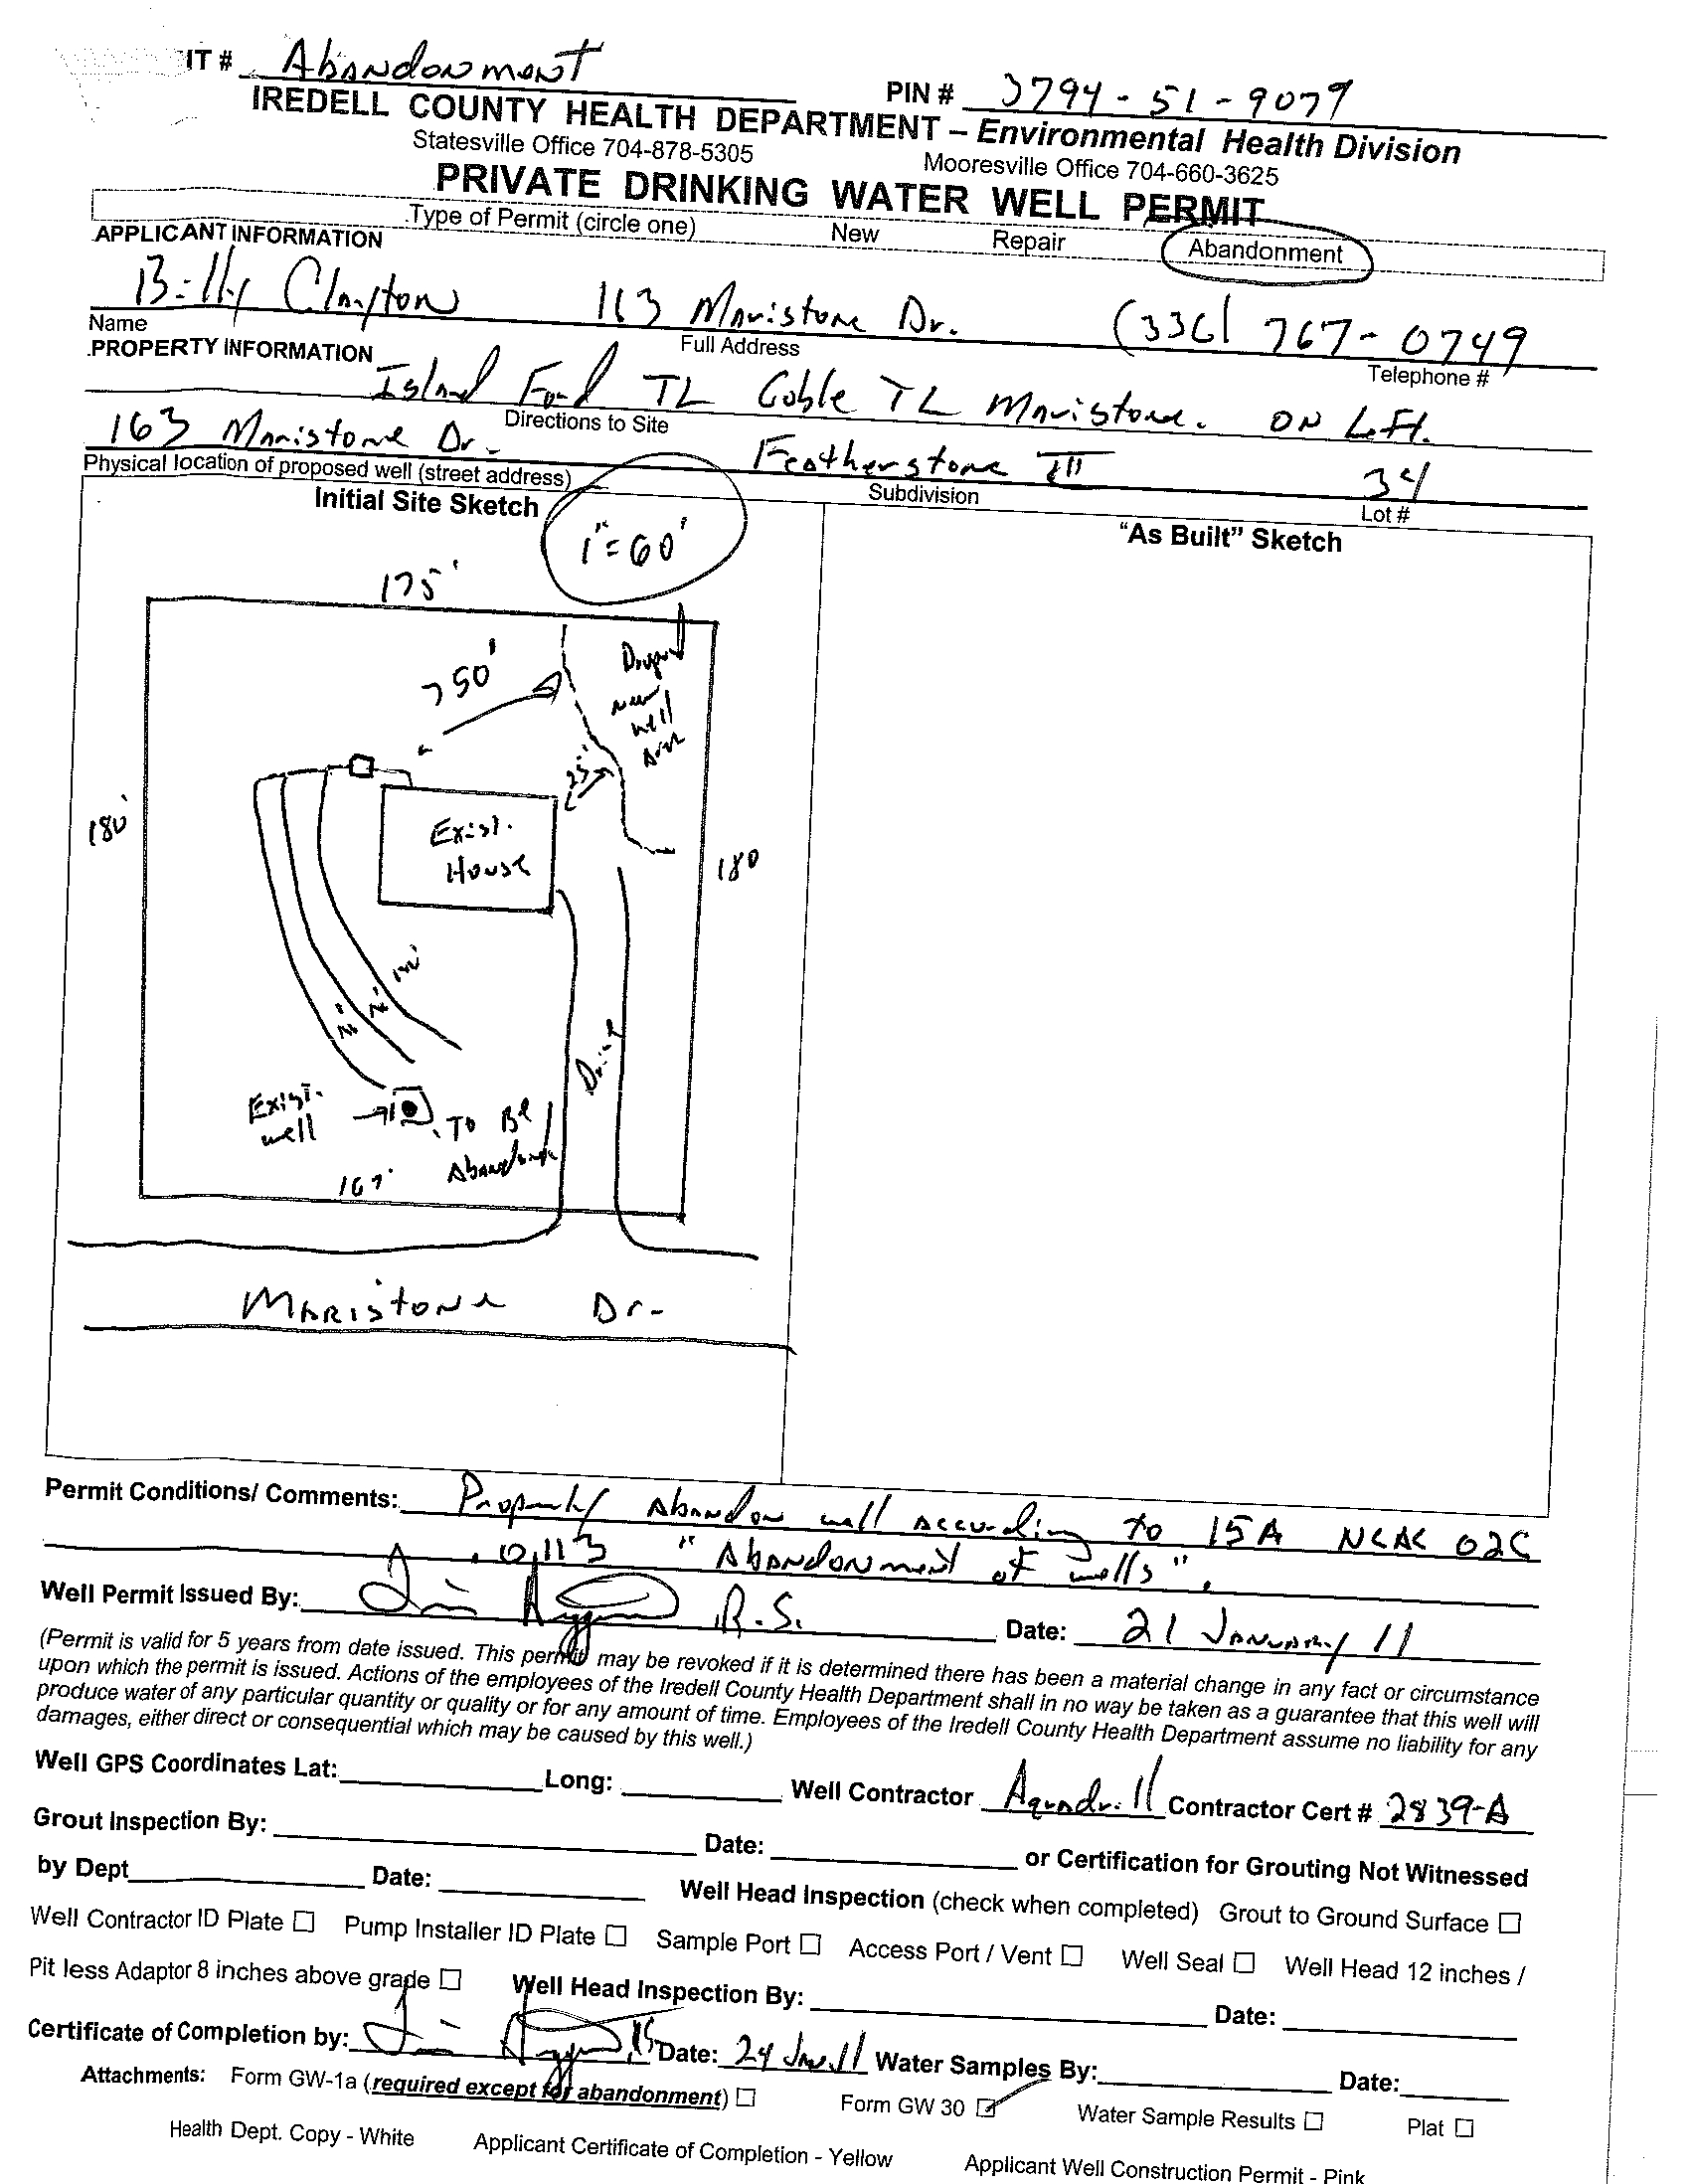 IT # Abandonment
PIN # 3794-51-9079
IREDELL COUNTY HEALTH DEPARTMENT – Environmental Health Division
Statesville Office 704-878-5305 Mooresville Office 704-660-3625
PRIVATE DRINKING WATER WELL PERMIT
Type of Permit (circle one) New Repair Abandonment
APPLICANT INFORMATION
Billy Clayton 163 Maristone Dr. (336) 767-0749
Name Full Address Telephone #
PROPERTY INFORMATION
Island Ford TL Goble TL Maristone. ON Left.
Directions to Site
163 Maristone Dr. Featherstone III 34
Physical location of proposed well (street address) Subdivision Lot #
Initial Site Sketch
1"=60'
"As Built" Sketch
175'
>50'
new
well
Area
25'
180'
Exist.
House
180
Drive
Exist.
well
To Be
167'
Maristone Dr.
Permit Conditions/ Comments: Properly Abandon well according to 15A NCAC 02C
.0113 "Abandonment of wells".
Well Permit Issued By: R.S. Date: 21 January 11
(Permit is valid for 5 years from date issued. This permit may be revoked if it is determined there has been a material change in any fact or circumstance
upon which the permit is issued. Actions of the employees of the Iredell County Health Department shall in no way be taken as a guarantee that this well will
produce water of any particular quantity or quality or for any amount of time. Employees of the Iredell County Health Department assume no liability for any
damages, either direct or consequential which may be caused by this well.)
Well GPS Coordinates Lat: Long: Well Contractor Aquadrill Contractor Cert # 2839-A
Grout Inspection By: Date: or Certification for Grouting Not Witnessed
by Dept Date: Well Head Inspection (check when completed) Grout to Ground Surface ☐
Well Contractor ID Plate ☐ Pump Installer ID Plate ☐ Sample Port ☐ Access Port / Vent ☐ Well Seal ☐ Well Head 12 inches /
Pit less Adaptor 8 inches above grade ☐ Well Head Inspection By: Date:
Certificate of Completion by: RS Date: 24 Jan. 11 Water Samples By: Date:
Attachments: Form GW-1a (required except for abandonment) ☐ Form GW 30 ☑ Water Sample Results ☐ Plat ☐
Health Dept. Copy - White Applicant Certificate of Completion - Yellow Applicant Well Construction Permit - Pink